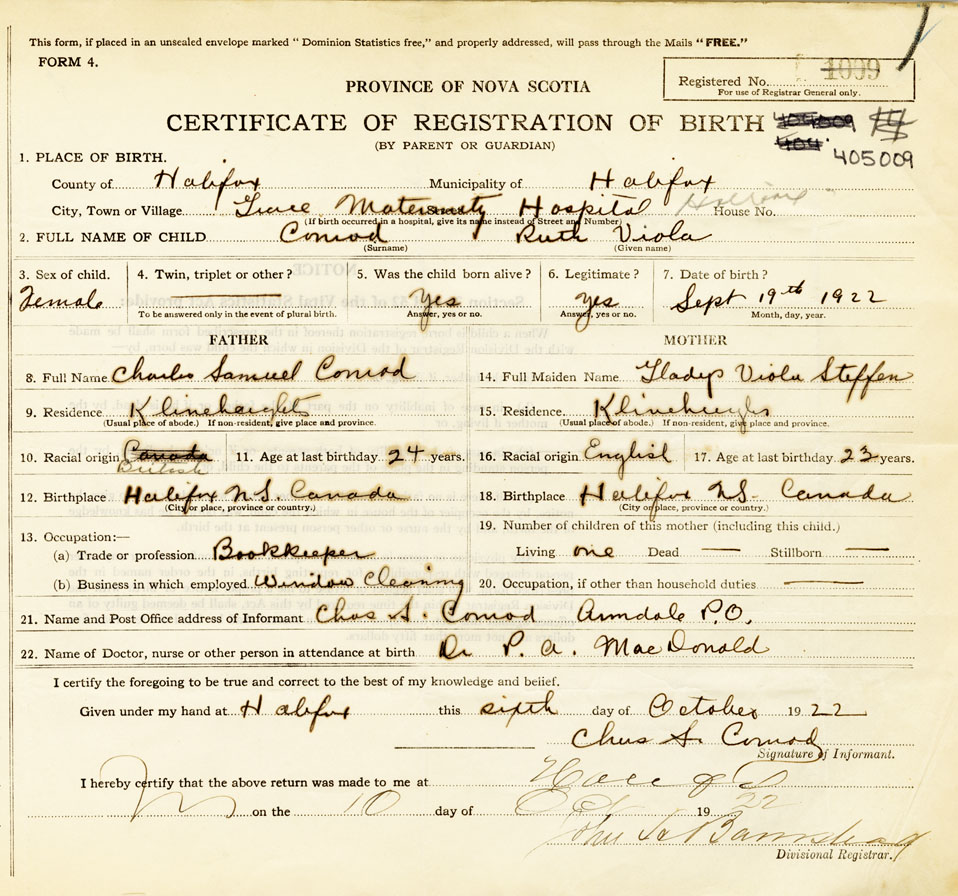 This form, if placed in an unsealed envelope marked "Dominion Statistics free," and properly addressed, will pass through the Mails "FREE."
FORM 4.
Registered No. 1099
For use of Registrar General only.
PROVINCE OF NOVA SCOTIA
CERTIFICATE OF REGISTRATION OF BIRTH
(BY PARENT OR GUARDIAN)
405009
1. PLACE OF BIRTH.
County of Halifax Municipality of Halifax
City, Town or Village Grace Maternity Hospital Halifax House No.
(If birth occurred in a hospital, give its name instead of Street and Number)
2. FULL NAME OF CHILD Conrod Ruth Viola
(Surname) (Given name)
3. Sex of child. 4. Twin, triplet or other? 5. Was the child born alive? 6. Legitimate? 7. Date of birth?
Female Yes Yes Sept 19th 1922
To be answered only in the event of plural birth. Answer, yes or no. Answer, yes or no. Month, day, year.
FATHER MOTHER
8. Full Name Charles Samuel Conrod 14. Full Maiden Name Gladys Viola Steffen
9. Residence Klineheights 15. Residence Klineheights
(Usual place of abode.) If non-resident, give place and province. (Usual place of abode.) If non-resident, give place and province.
10. Racial origin Canada 11. Age at last birthday 24 years. 16. Racial origin English 17. Age at last birthday 23 years.
British
12. Birthplace Halifax N.S. Canada 18. Birthplace Halifax N.S. Canada
(City or place, province or country.) (City or place, province or country.)
13. Occupation:— 19. Number of children of this mother (including this child.)
(a) Trade or profession Bookkeeper Living one Dead — Stillborn —
(b) Business in which employed Window Cleaning 20. Occupation, if other than household duties —
21. Name and Post Office address of Informant Chas S. Conrod Armdale P.O.
22. Name of Doctor, nurse or other person in attendance at birth Dr P. A. MacDonald
I certify the foregoing to be true and correct to the best of my knowledge and belief.
Given under my hand at Halifax this sixth day of October 1922
Chas S. Conrod
Signature of Informant.
I hereby certify that the above return was made to me at
on the 10 day of Oct 1922
Divisional Registrar.